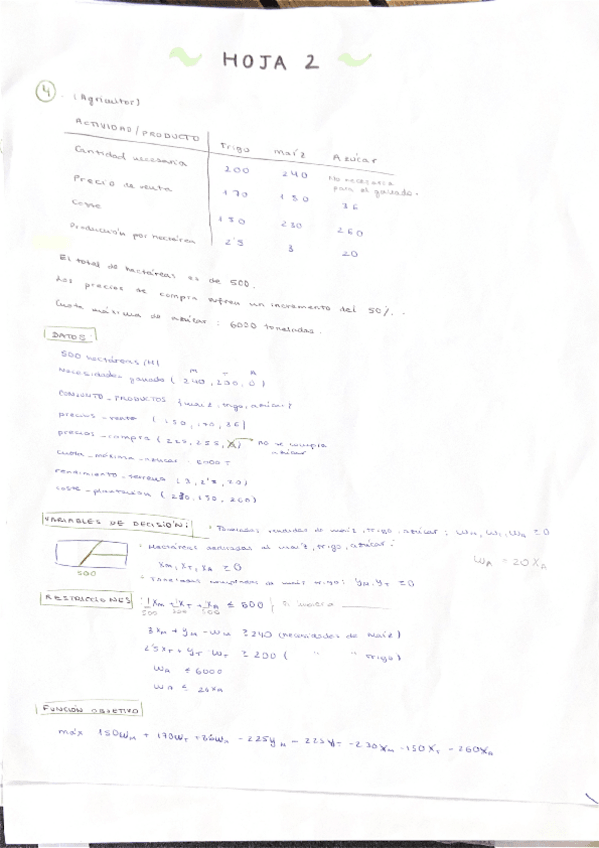 HOJA 2
4. (Agricultor)
ACTIVIDAD/PRODUCTO Trigo maíz Azúcar
Cantidad necesaria 200 240 No necesaria para el ganado.
Precio de venta 170 150 36
Coste 150 230 260
Producción por hectárea 2'5 3 20
El total de hectáreas es de 500.
Los precios de compra sufren un incremento del 50%.
Cuota máxima de azúcar: 6000 toneladas.
DATOS:
500 hectáreas (H)
M T A
necesidades ganado (240, 200, 0)
CONJUNTO_PRODUCTOS {maíz, trigo, azúcar}
precios_venta (150, 170, 36)
precios_compra (225, 255, no se compra azúcar
cuota_máxima_azúcar: 6000 T
rendimiento_terreno (3, 2'5, 20)
coste_plantación (230, 150, 260)
VARIABLES DE DECISIÓN: · Toneladas vendidas de maíz, trigo, azúcar: WM, WT, WA ≥ 0
· Hectáreas dedicadas al maíz, trigo, azúcar:
XM, XT, XA ≥ 0
WA = 20XA
500
· Toneladas compradas de maíz trigo: YM, YT ≥ 0
RESTRICCIONES XM + XT + XA ≤ 500
500 500 500
3XM + YM - WM ≥ 240 (necesidades de maíz)
2'5XT + YT - WT ≥ 200 ( " " trigo)
WA ≤ 6000
WA ≤ 20XA
FUNCIÓN OBJETIVO
máx 150WM + 170WT + 36WA - 225YM - 225YT - 230XM - 150XT - 260XA